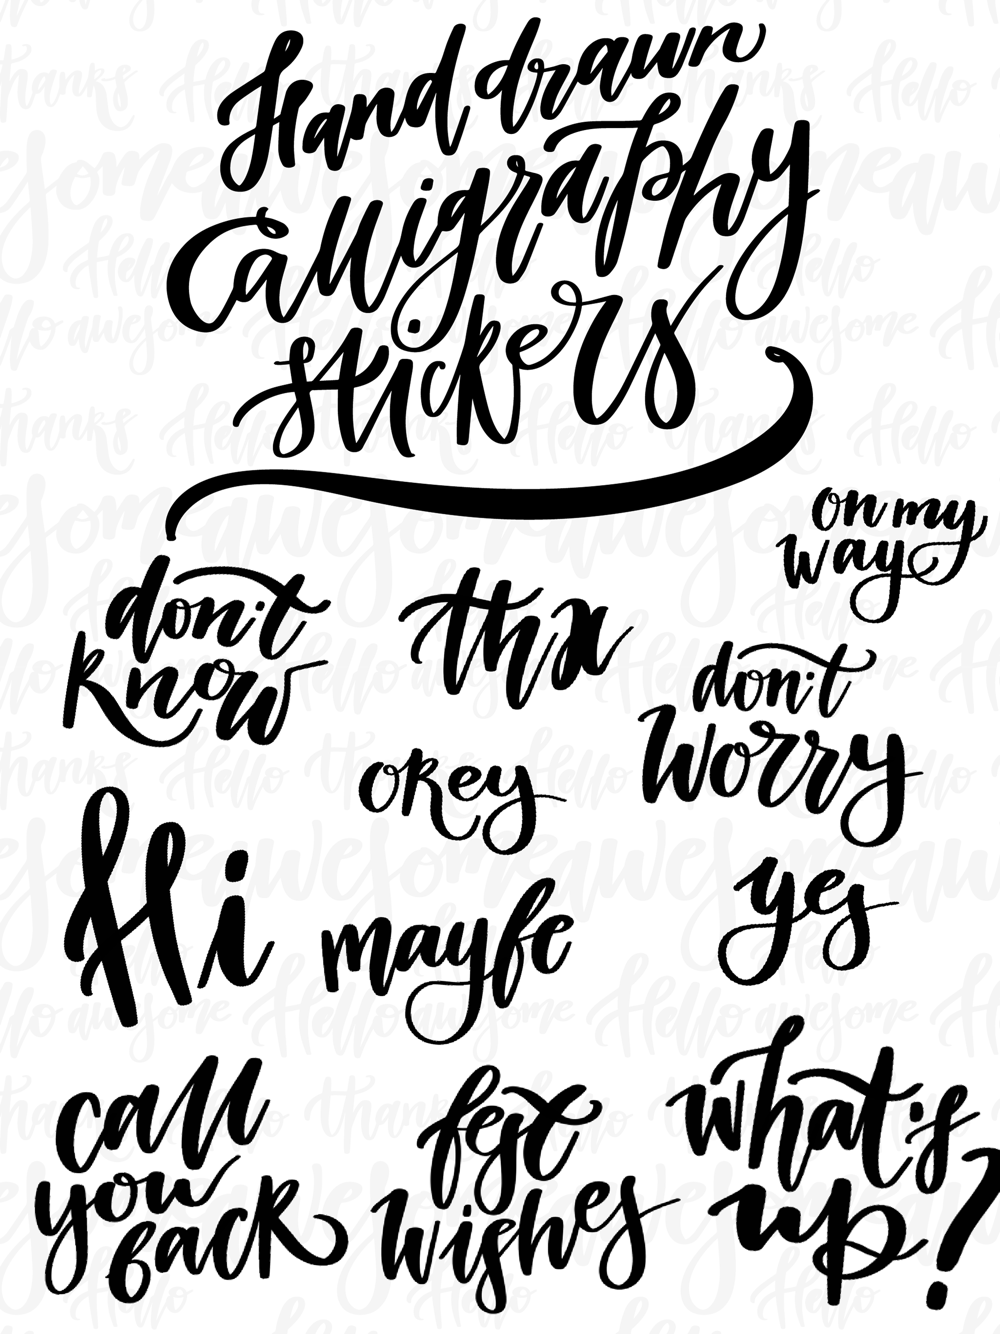 Hand drawn
Calligraphy
stickers
on my
way
don't
know
thx
don't
worry
okey
Hi
maybe
yes
call
you
back
best
wishes
what's
up?
thanks
Hello
awesome